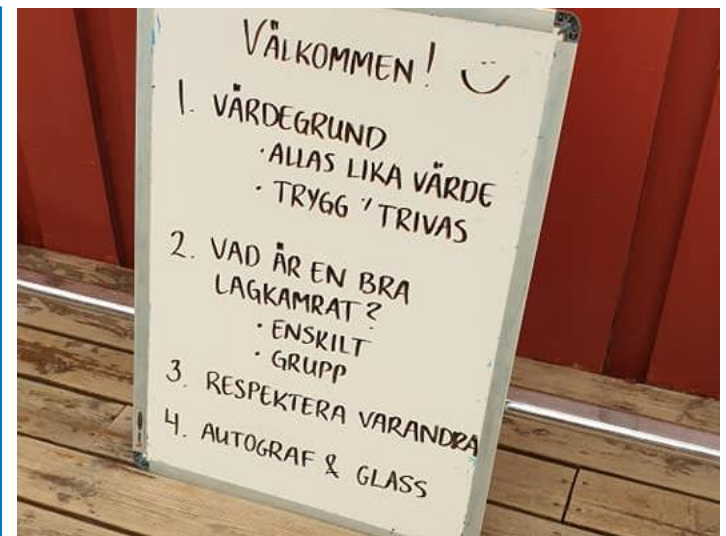 VÄLKOMMEN!
1. VÄRDEGRUND
· ALLAS LIKA VÄRDE
· TRYGG / TRIVAS
2. VAD ÄR EN BRA
LAGKAMRAT?
· ENSKILT
· GRUPP
3. RESPEKTERA VARANDRA
4. AUTOGRAF & GLASS